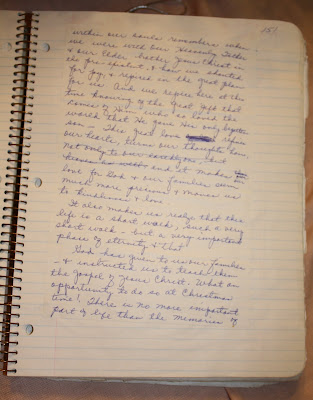 151
within our souls remembers when
we were with our Heavenly Father
& our Elder brother Jesus Christ in
the pre-existent & how we shouted
for joy & rejoiced in the great plan
for us. And we rejoice here at this
time knowing of the great gift that
comes of Him "who so loved the
world that He gave His only begotten
son — This great love refines
our hearts, turns our thoughts home,
not only to our but
and it makes our
love for God & our families seem
much more precious & moves us
to kindliness & love.
It also makes us realize that this
life is a short walk, such a very
short walk - but a very important
phase of eternity & that
God has given to us our families
& instructed us to teach them
the Gospel of Jesus Christ. What an
opportunity to do so at Christmas
time! There is no more important
part of life than the memories of